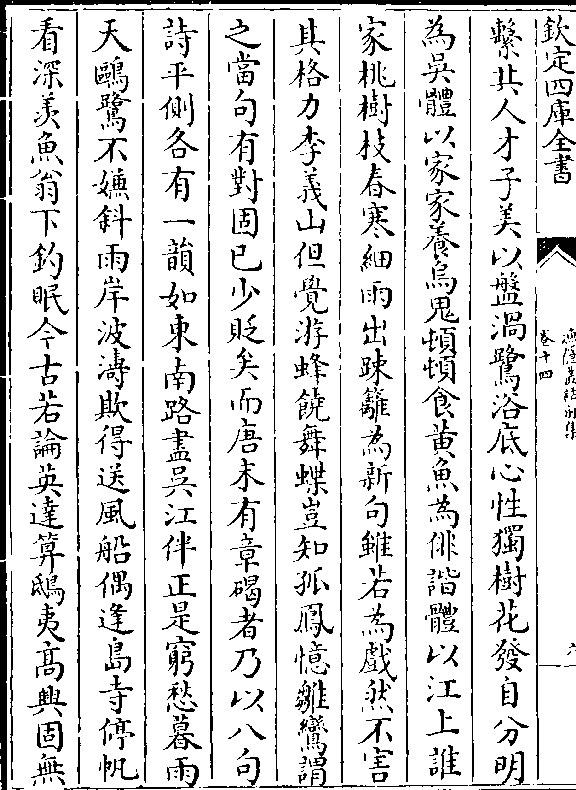 欽定四庫全書
卷十四
繫其人才子美以盤渦鷺浴底心性獨樹花發自分明
為吳體以家家養烏鬼頓頓食黄魚為俳諧體以江上誰
家桃樹枝春寒細雨出疎籬為新句雖若為戲然不害
其格力李義山但覺游蜂饒舞蝶豈知孤鳳憶離鸞謂
之當句有對固已少貶矣而唐末有章碣者乃以八句
詩平側各有一韻如東南路盡吳江伴正是窮愁暮雨
天鷗鷺不嫌斜雨岸波濤欺得送風船偶逢島寺停帆
看深羡魚翁下釣眠今古若論英達算鴟夷髙興固無